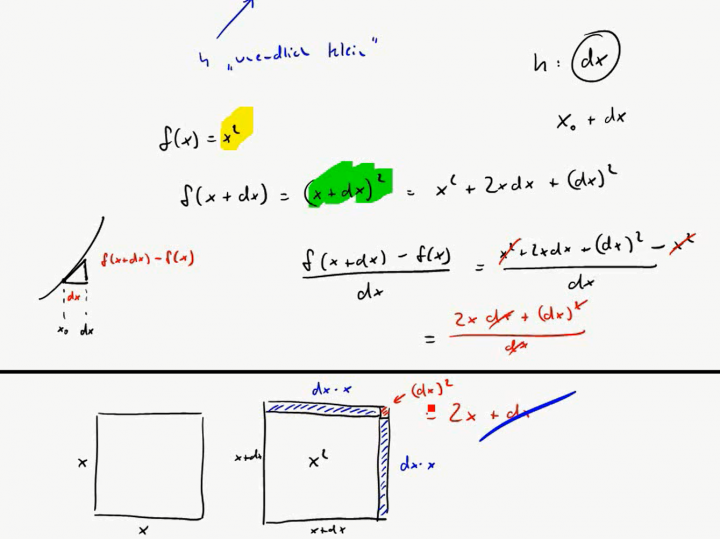 h „unendlich klein"
h : dx
x₀ + dx
f(x) = x²
f(x+dx) = (x+dx)² = x² + 2xdx + (dx)²
f(x+dx) – f(x)
dx
x₀ dx
f(x+dx) – f(x) / dx = x² + 2xdx + (dx)² – x² / dx
= 2x dx + (dx)² / dx
= 2x + dx
dx·x
(dx)²
x
x
x+dx
x²
dx·x
x+dx